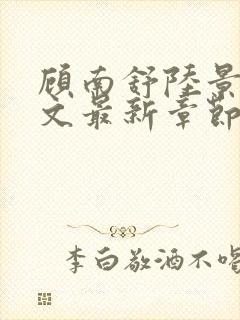 顾南舒陸景
文最新章節
李白敬酒不喝